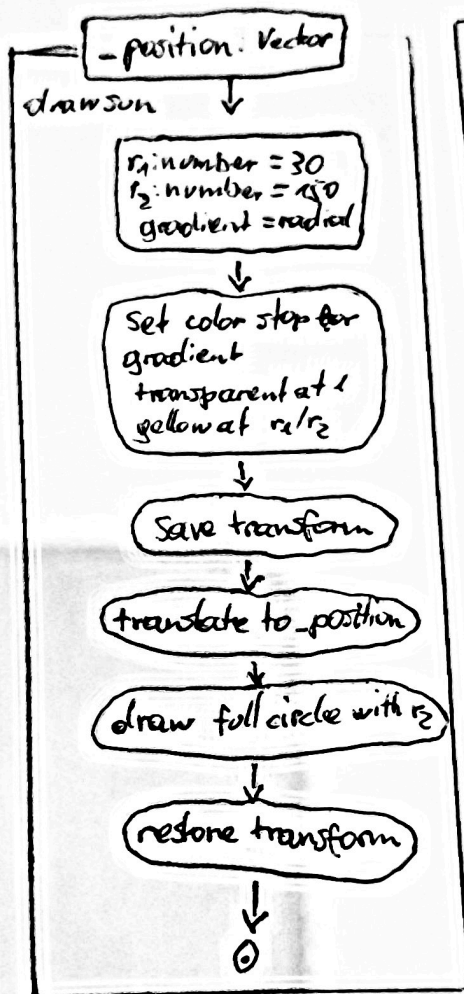 _position: Vector
drawsun
r1:number = 30
r2:number = 150
gradient = radial
Set color stop for
gradient
transparent at 1
yellow at r1/r2
Save transform
translate to _position
draw full circle with r2
restore transform